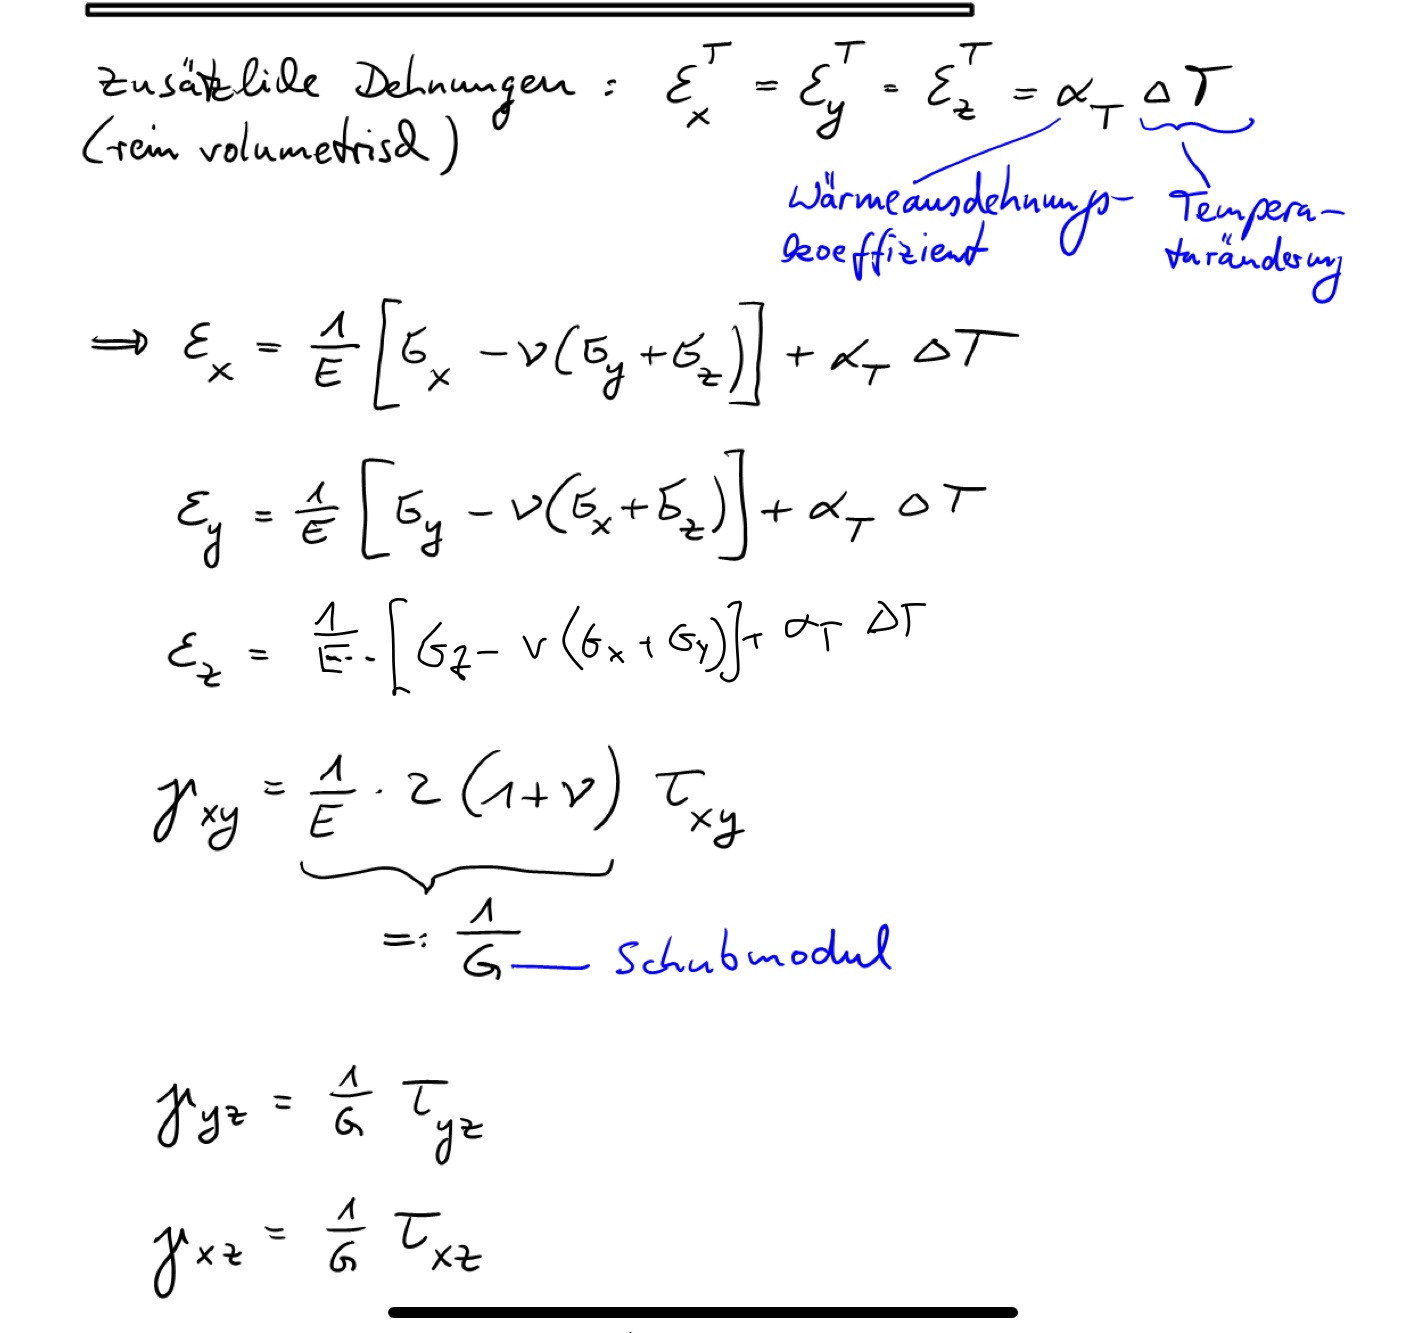 Zusätzliche Dehnungen : ε_x^T = ε_y^T = ε_z^T = α_T ΔT
(rein volumetrisch)
Wärmeausdehnungs- Tempera-
koeffizient turänderung
⟹ ε_x = 1/E [σ_x - ν(σ_y + σ_z)] + α_T ΔT
ε_y = 1/E [σ_y - ν(σ_x + σ_z)] + α_T ΔT
ε_z = 1/E · [σ_z - ν(σ_x + σ_y)] + α_T ΔT
γ_xy = 1/E · 2 (1+ν) τ_xy
=: 1/G — Schubmodul
γ_yz = 1/G τ_yz
γ_xz = 1/G τ_xz